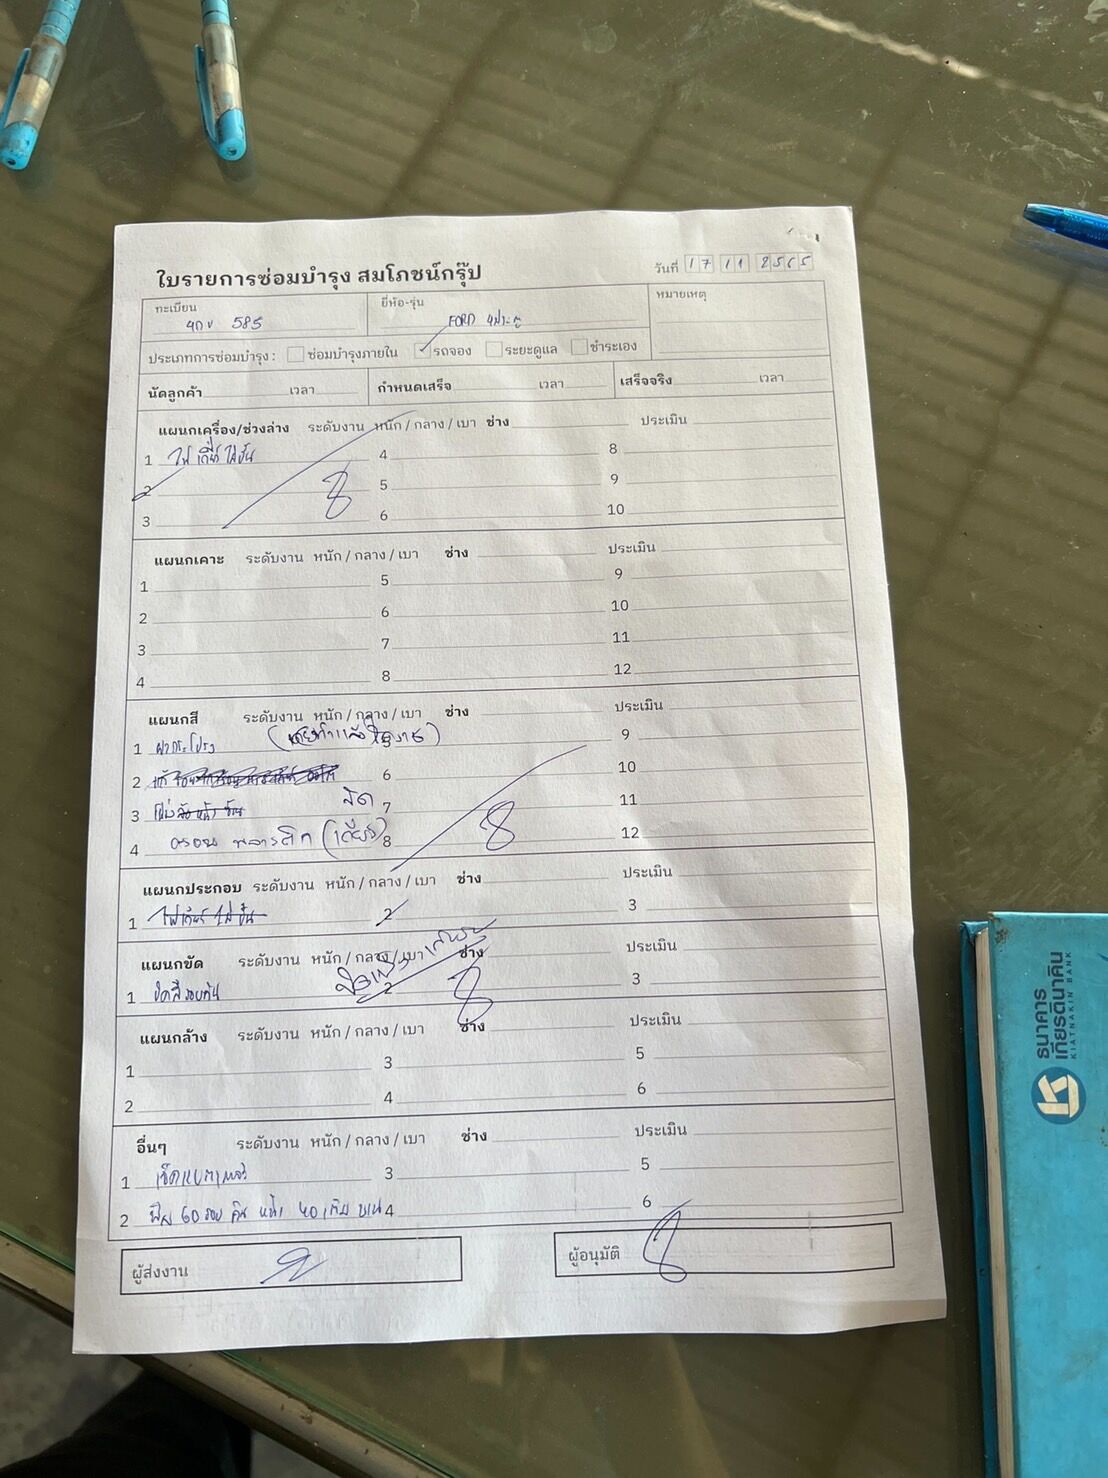 ใบรายการซ่อมบำรุง สมโภชน์กรุ๊ป
วันที่ 17 11 2565
ทะเบียน
4กข 585
ยี่ห้อ-รุ่น
FORD 4ประตู
หมายเหตุ
ประเภทการซ่อมบำรุง : ซ่อมบำรุงภายใน รถจอง ระยะดูแล ชำระเอง
นัดลูกค้า เวลา กำหนดเสร็จ เวลา เสร็จจริง เวลา
แผนกเครื่อง/ช่วงล่าง ระดับงาน หนัก / กลาง / เบา ช่าง ประเมิน
1 ไฟเกียร์ ไม่ขึ้น 4 8
2 5 9
3 6 10
แผนกเคาะ ระดับงาน หนัก / กลาง / เบา ช่าง ประเมิน
1 5 9
2 6 10
3 7 11
4 8 12
แผนกสี ระดับงาน หนัก / กลาง / เบา ช่าง ประเมิน
1 ฝากระโปรง 5 9
2 6 10
3 7 11
4 8 12
แผนกประกอบ ระดับงาน หนัก / กลาง / เบา ช่าง ประเมิน
1 ไฟเกียร์ ไม่ขึ้น 2 3
แผนกขัด ระดับงาน หนัก / กลาง / เบา ช่าง ประเมิน
1 ขัดสีรอบคัน 2 3
แผนกล้าง ระดับงาน หนัก / กลาง / เบา ช่าง ประเมิน
1 3 5
2 4 6
อื่นๆ ระดับงาน หนัก / กลาง / เบา ช่าง ประเมิน
1 เช็คแบตเตอรี่ 3 5
2 ฟิล์ม 60 รอบคัน หน้า 40 เต็มบาน 4 6
ผู้ส่งงาน
ผู้อนุมัติ
ธนาคาร
เกียรตินาคิน
KIATNAKIN BANK